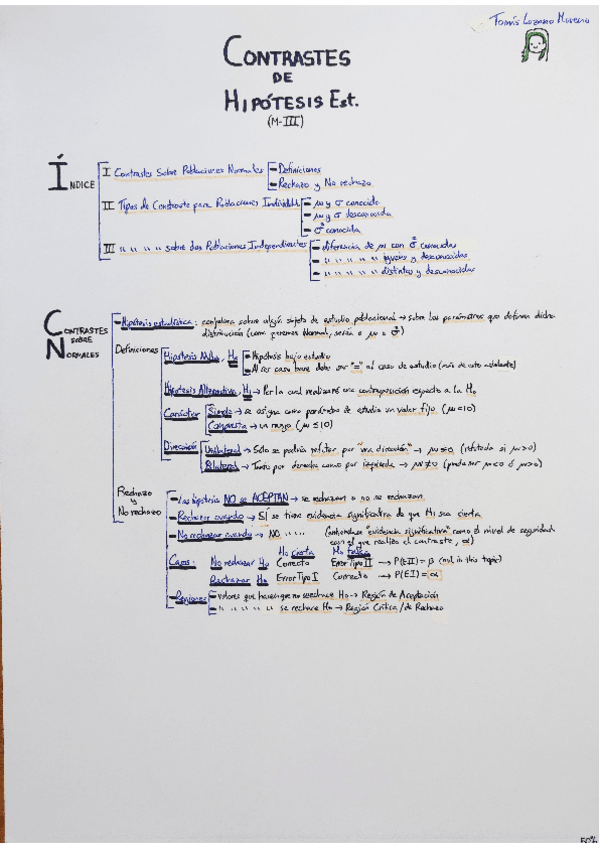 Tomás Lozano Moreno
CONTRASTES
DE
HIPÓTESIS Est.
(M-III)
ÍNDICE
I Contrastes Sobre Poblaciones Normales
- Definiciones
- Rechazo y No rechazo
II Tipos de Contraste para Poblaciones Individ.
- μ y σ conocida
- μ y σ desconocida
- σ² conocida
III " " " " sobre dos Poblaciones Independientes
- diferencia de μ con σ² conocidas
- " " " " " iguales y desconocidas
- " " " " " distintas y desconocidas
CONTRASTES SOBRE NORMALES
- Hipótesis estadística: conjetura sobre algún sujeto de estudio poblacional → sobre los parámetros que definan dicha
distribución (como queremos Normal, sería o μ o σ²)
Definiciones
Hipótesis Nula, H₀
- Hipótesis bajo estudio
- Al ser caso base debe ser "=" al caso de estudio (más de esto adelante)
Hipótesis Alternativa, H₁ → Por la cual realizaré una contraposición respecto a la H₀
Carácter
Simple → se asigna como parámetro de estudio un valor fijo (μ=10)
Compuesta → un rango (μ≤10)
Dirección
Unilateral → Sólo se podría refutar por "una dirección" → μ≤0 (refutada si μ>0)
Bilateral → Tanto por derecha como por izquierda → μ≠0 (puede ser μ<0 ó μ>0)
Rechazo
y
No rechazo
- Las hipótesis NO se ACEPTAN → se rechazan o no se rechazan
- Rechazar cuando → SÍ se tiene evidencia significativa de que H₁ sea cierta
- No rechazar cuando → NO " " " " (entiéndase "evidencia significativa" como el nivel de seguridad
con el que realizo el contraste, α)
H₀ cierta H₀ falsa
Casos: No rechazar H₀ Correcto Error Tipo II → P(EII) = β (not in this topic)
Rechazar H₀ Error Tipo I Correcto → P(EI) = α
- Regiones
- valores que hacen que no se rechace H₀ → Región de Aceptación
- " " " " " se rechace H₀ → Región Crítica / de Rechazo